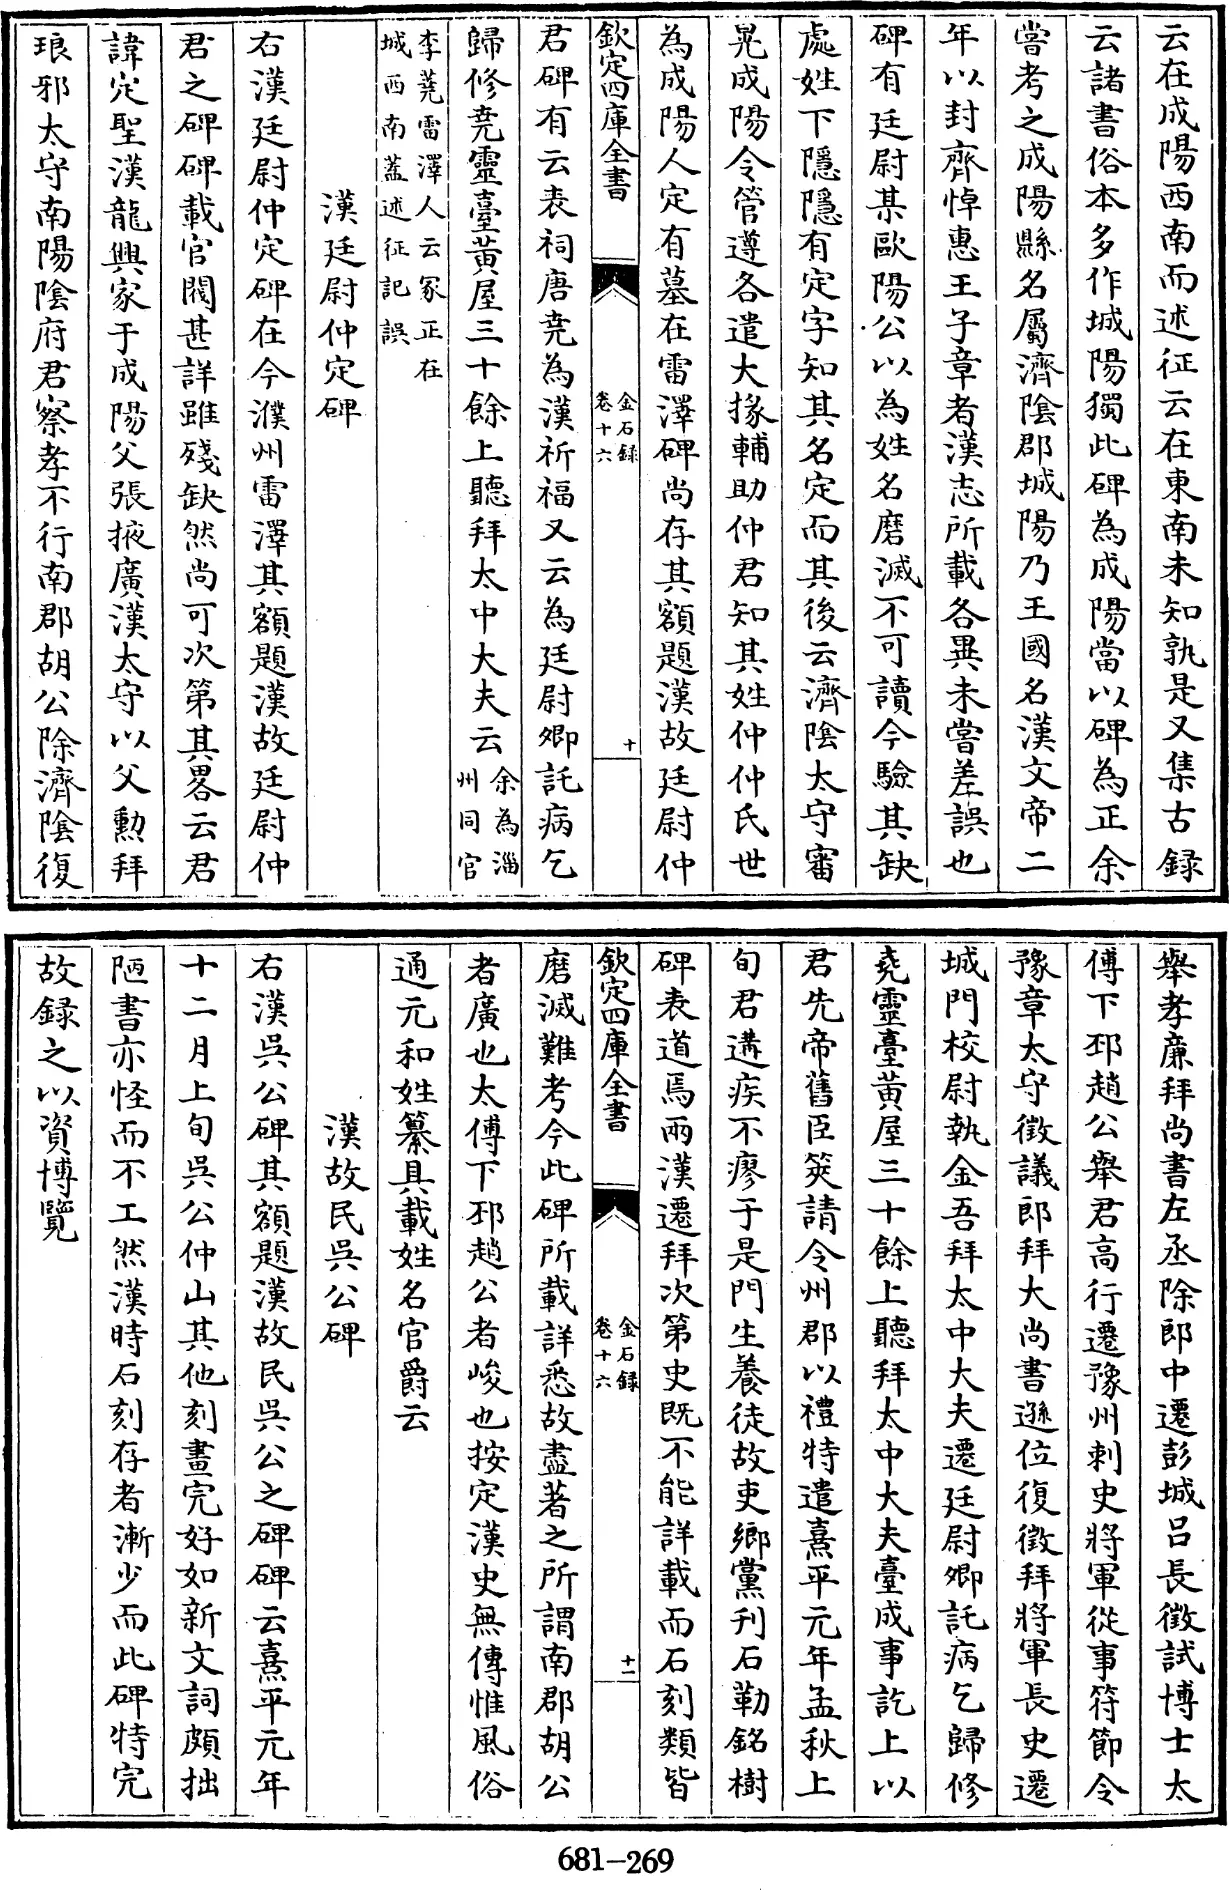 云在成陽西南而述征云在東南未知孰是又集古録
云諸書俗本多作城陽獨此碑為成陽當以碑為正余
嘗考之成陽縣名屬濟陰郡城陽乃王國名漢文帝二
年以封齊悼惠王子章者漢志所載各異未嘗差誤也
碑有廷尉某歐陽公以為姓名磨滅不可讀今驗其缺
處姓下隱隱有定字知其名定而其後云濟陰太守審
晃成陽令管遵各遣大掾輔助仲君知其姓仲仲氏世
為成陽人定有墓在雷澤碑尚存其額題漢故廷尉仲
欽定四庫全書
金石録
卷十六
十
君碑有云表祠唐堯為漢祈福又云為廷尉卿託病乞
歸修堯靈臺黃屋三十餘上聽拜太中大夫云
余為淄
州同官
李莞雷澤人云冢正在
城西南蓋述征記誤
漢廷尉仲定碑
右漢廷尉仲定碑在今濮州雷澤其額題漢故廷尉仲
君之碑碑載官閥甚詳雖殘缺然尚可次第其畧云君
諱定聖漢龍興家于成陽父張掖廣漢太守以父勳拜
琅邪太守南陽陰府君察孝不行南郡胡公除濟陰復
舉孝廉拜尚書左丞除郎中遷彭城呂長徵試博士太
傅下邳趙公舉君高行遷豫州刺史將軍從事符節令
豫章太守徵議郎拜大尚書遜位復徵拜將軍長史遷
城門校尉執金吾拜太中大夫遷廷尉卿託病乞歸修
堯靈臺黃屋三十餘上聽拜太中大夫臺成事訖上以
君先帝舊臣筴請令州郡以禮特遣熹平元年孟秋上
旬君遘疾不瘳于是門生養徒故吏鄉黨刋石勒銘樹
碑表道焉兩漢遷拜次第史既不能詳載而石刻類皆
欽定四庫全書
金石録
卷十六
十一
磨滅難考今此碑所載詳悉故盡著之所謂南郡胡公
者廣也太傅下邳趙公者峻也按定漢史無傳惟風俗
通元和姓纂具載姓名官爵云
漢故民吳公碑
右漢吳公碑其額題漢故民吳公之碑碑云熹平元年
十二月上旬吳公仲山其他刻畫完好如新文詞頗拙
陋書亦怪而不工然漢時石刻存者漸少而此碑特完
故録之以資博覽
681-269